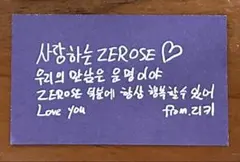 사랑하는 ZEROSE ♡
우리의 만남은 운명이야
ZEROSE 덕분에 항상 행복할수있어
Love you from.리키